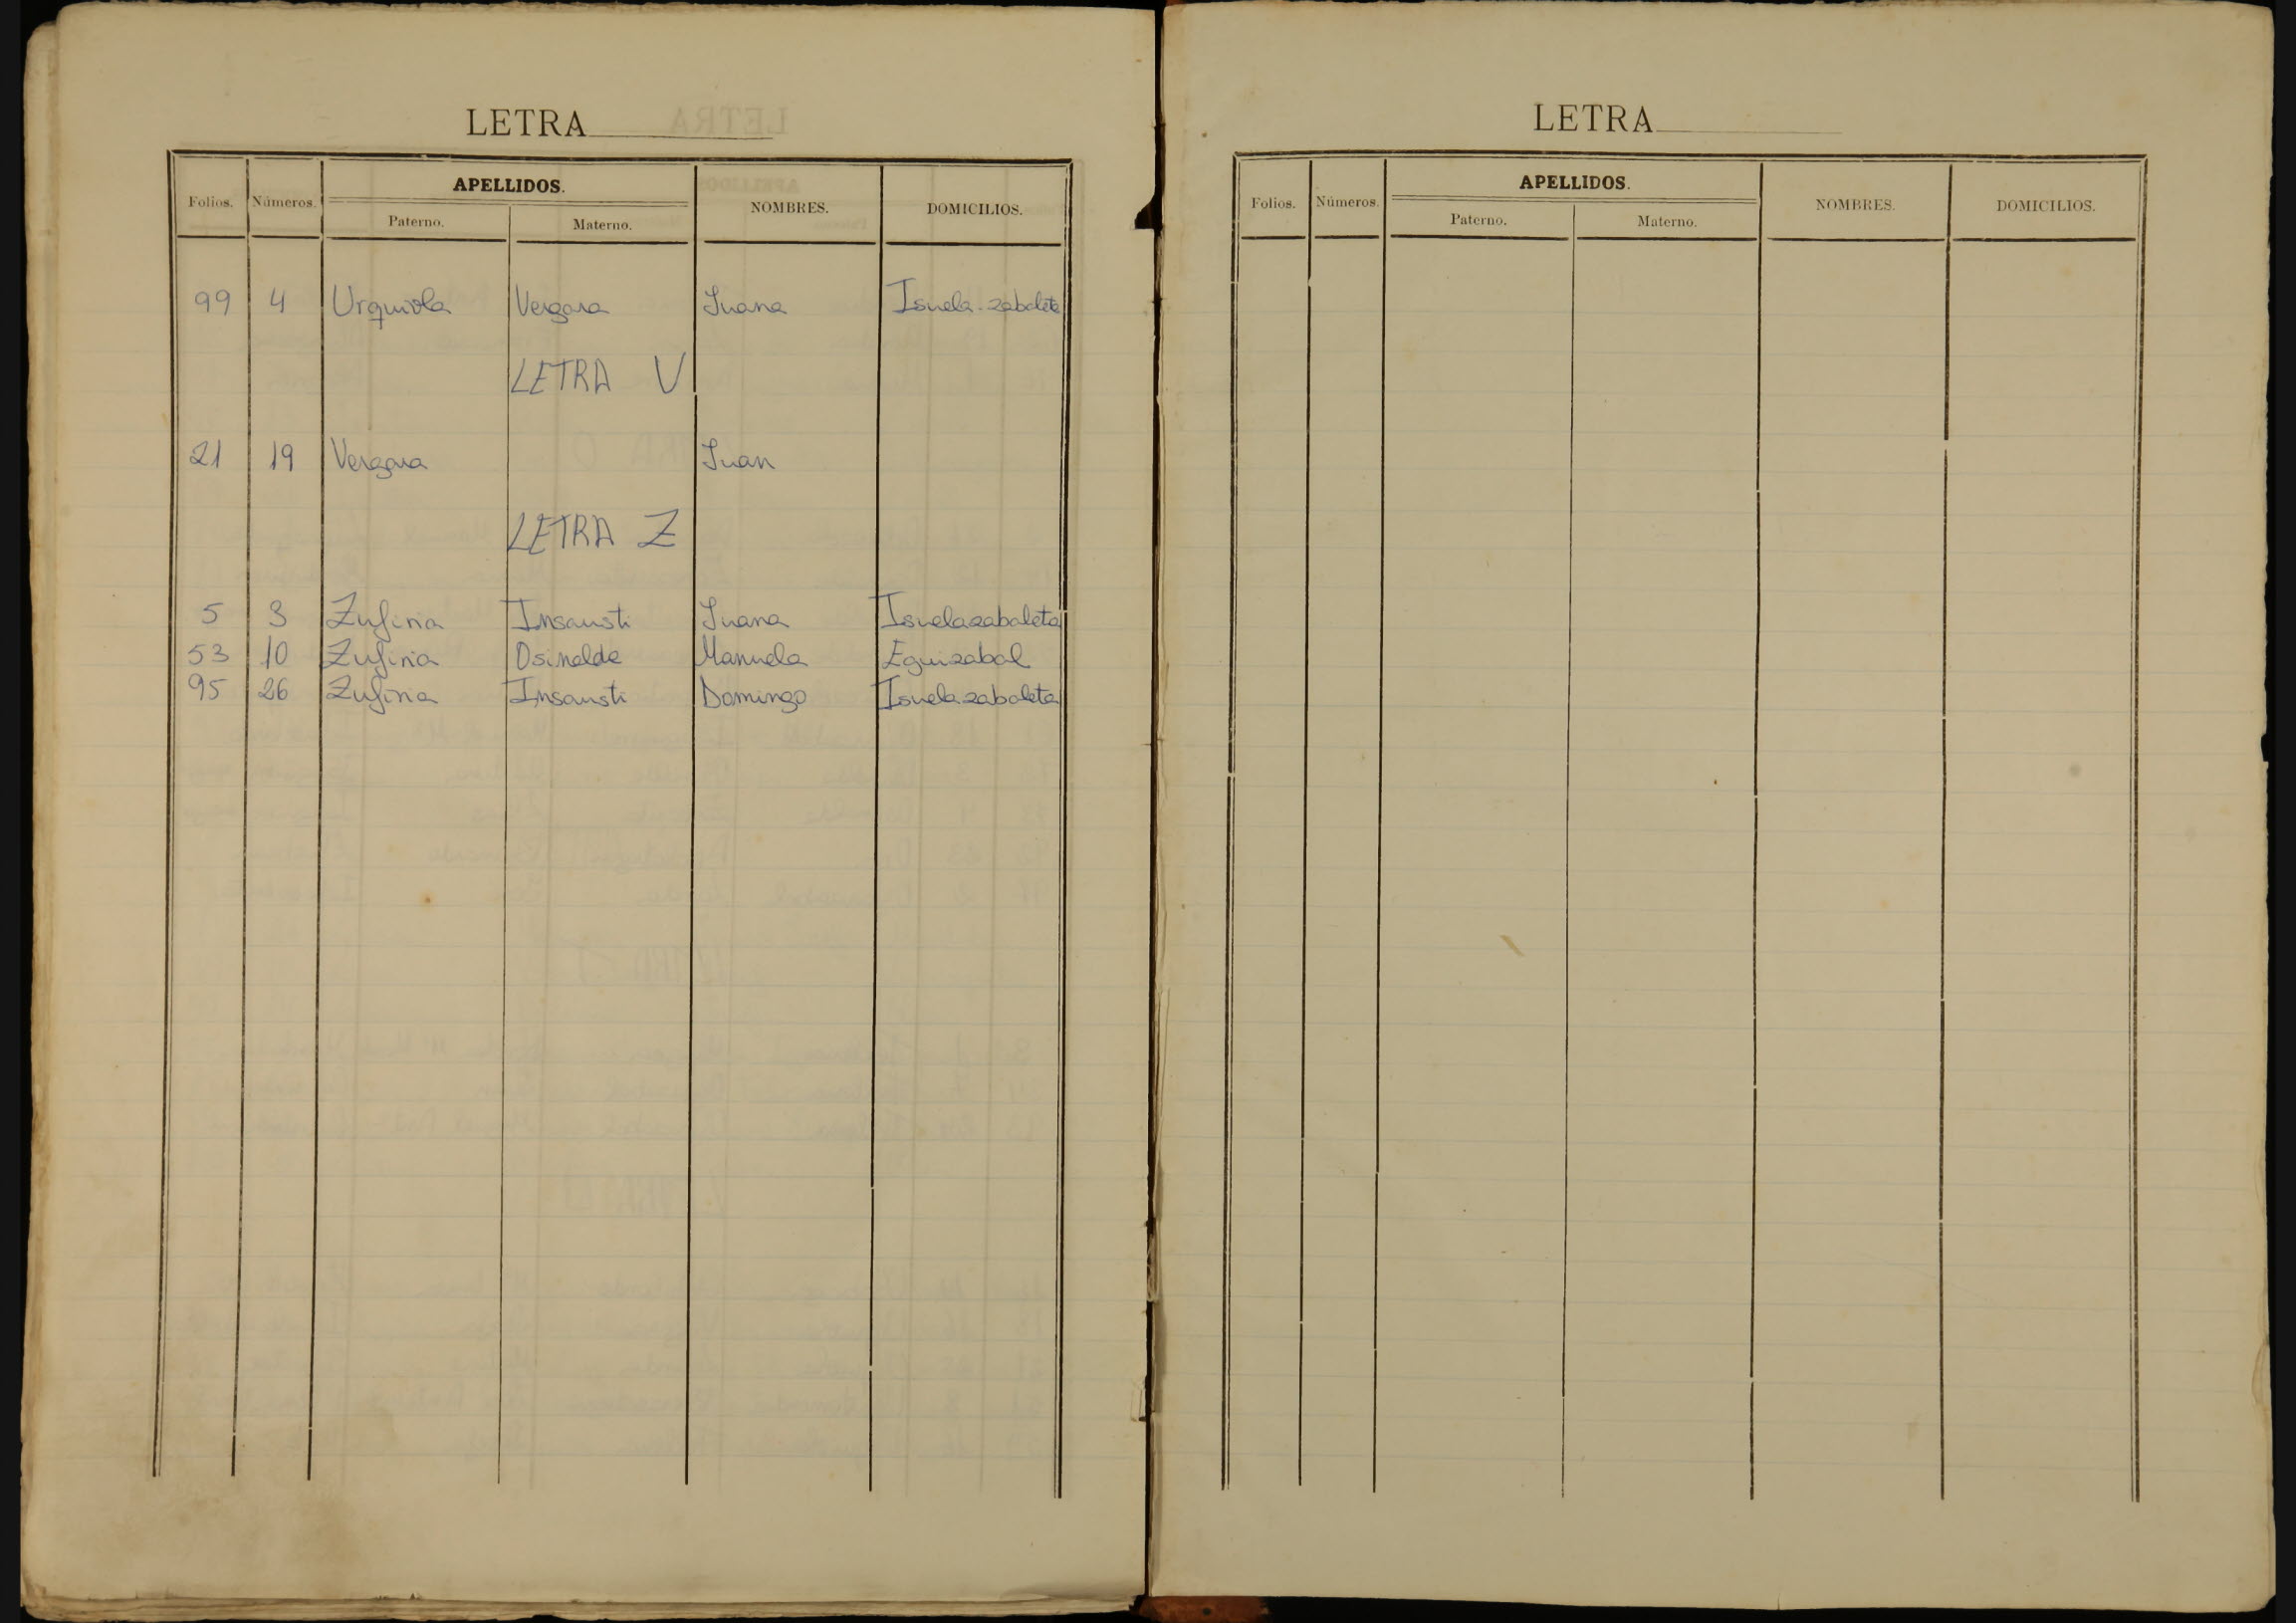 LETRA
Folios. Números. APELLIDOS. NOMBRES. DOMICILIOS.
Paterno. Materno.
99 4 Urquiola Vergara Juana Isuela-zabaleta
LETRA V
21 19 Vergara Juan
LETRA Z
5 3 Zufiria Insausti Juana Isuelazabaleta
53 10 Zufiria Osinalde Manuela Eguizabal
95 26 Zufiria Insausti Domingo Isuelazabaleta
LETRA
Folios. Números. APELLIDOS. NOMBRES. DOMICILIOS.
Paterno. Materno.